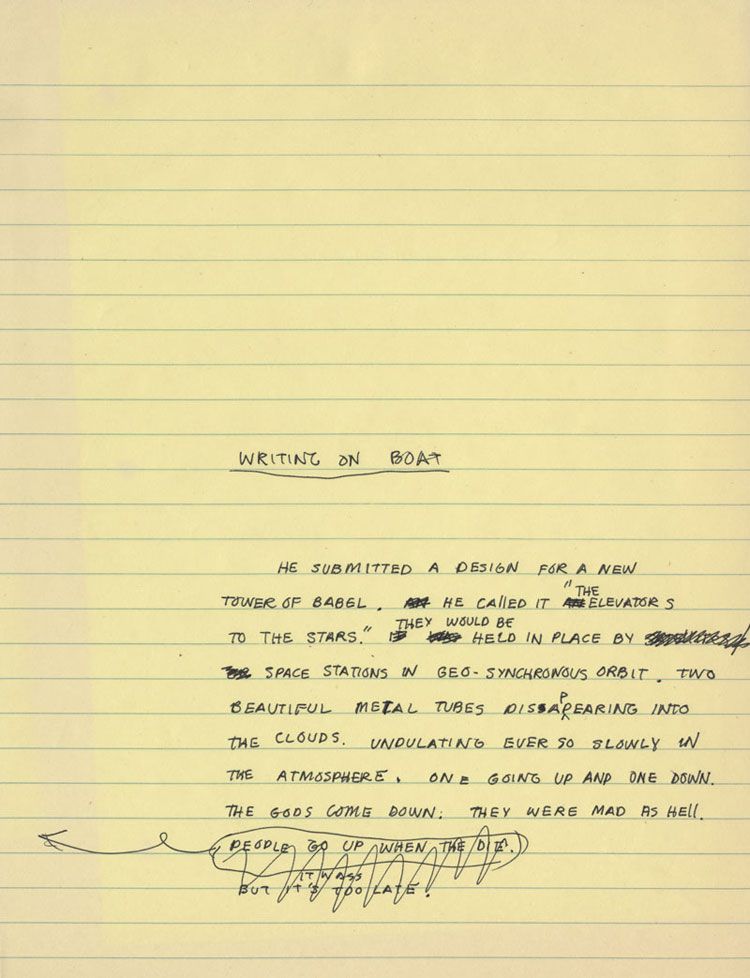 WRITING ON BOAT
HE SUBMITTED A DESIGN FOR A NEW
"THE
TOWER OF BABEL. HE CALLED IT ELEVATORS
THEY WOULD BE
TO THE STARS." HELD IN PLACE BY
SPACE STATIONS IN GEO-SYNCHRONOUS ORBIT. TWO
BEAUTIFUL METAL TUBES DISSAPPEARING INTO
THE CLOUDS. UNDULATING EVER SO SLOWLY IN
THE ATMOSPHERE. ONE GOING UP AND ONE DOWN.
THE GODS COME DOWN: THEY WERE MAD AS HELL.
PEOPLE GO UP WHEN THE DIE.
IT WAS
BUT IT'S TOO LATE.